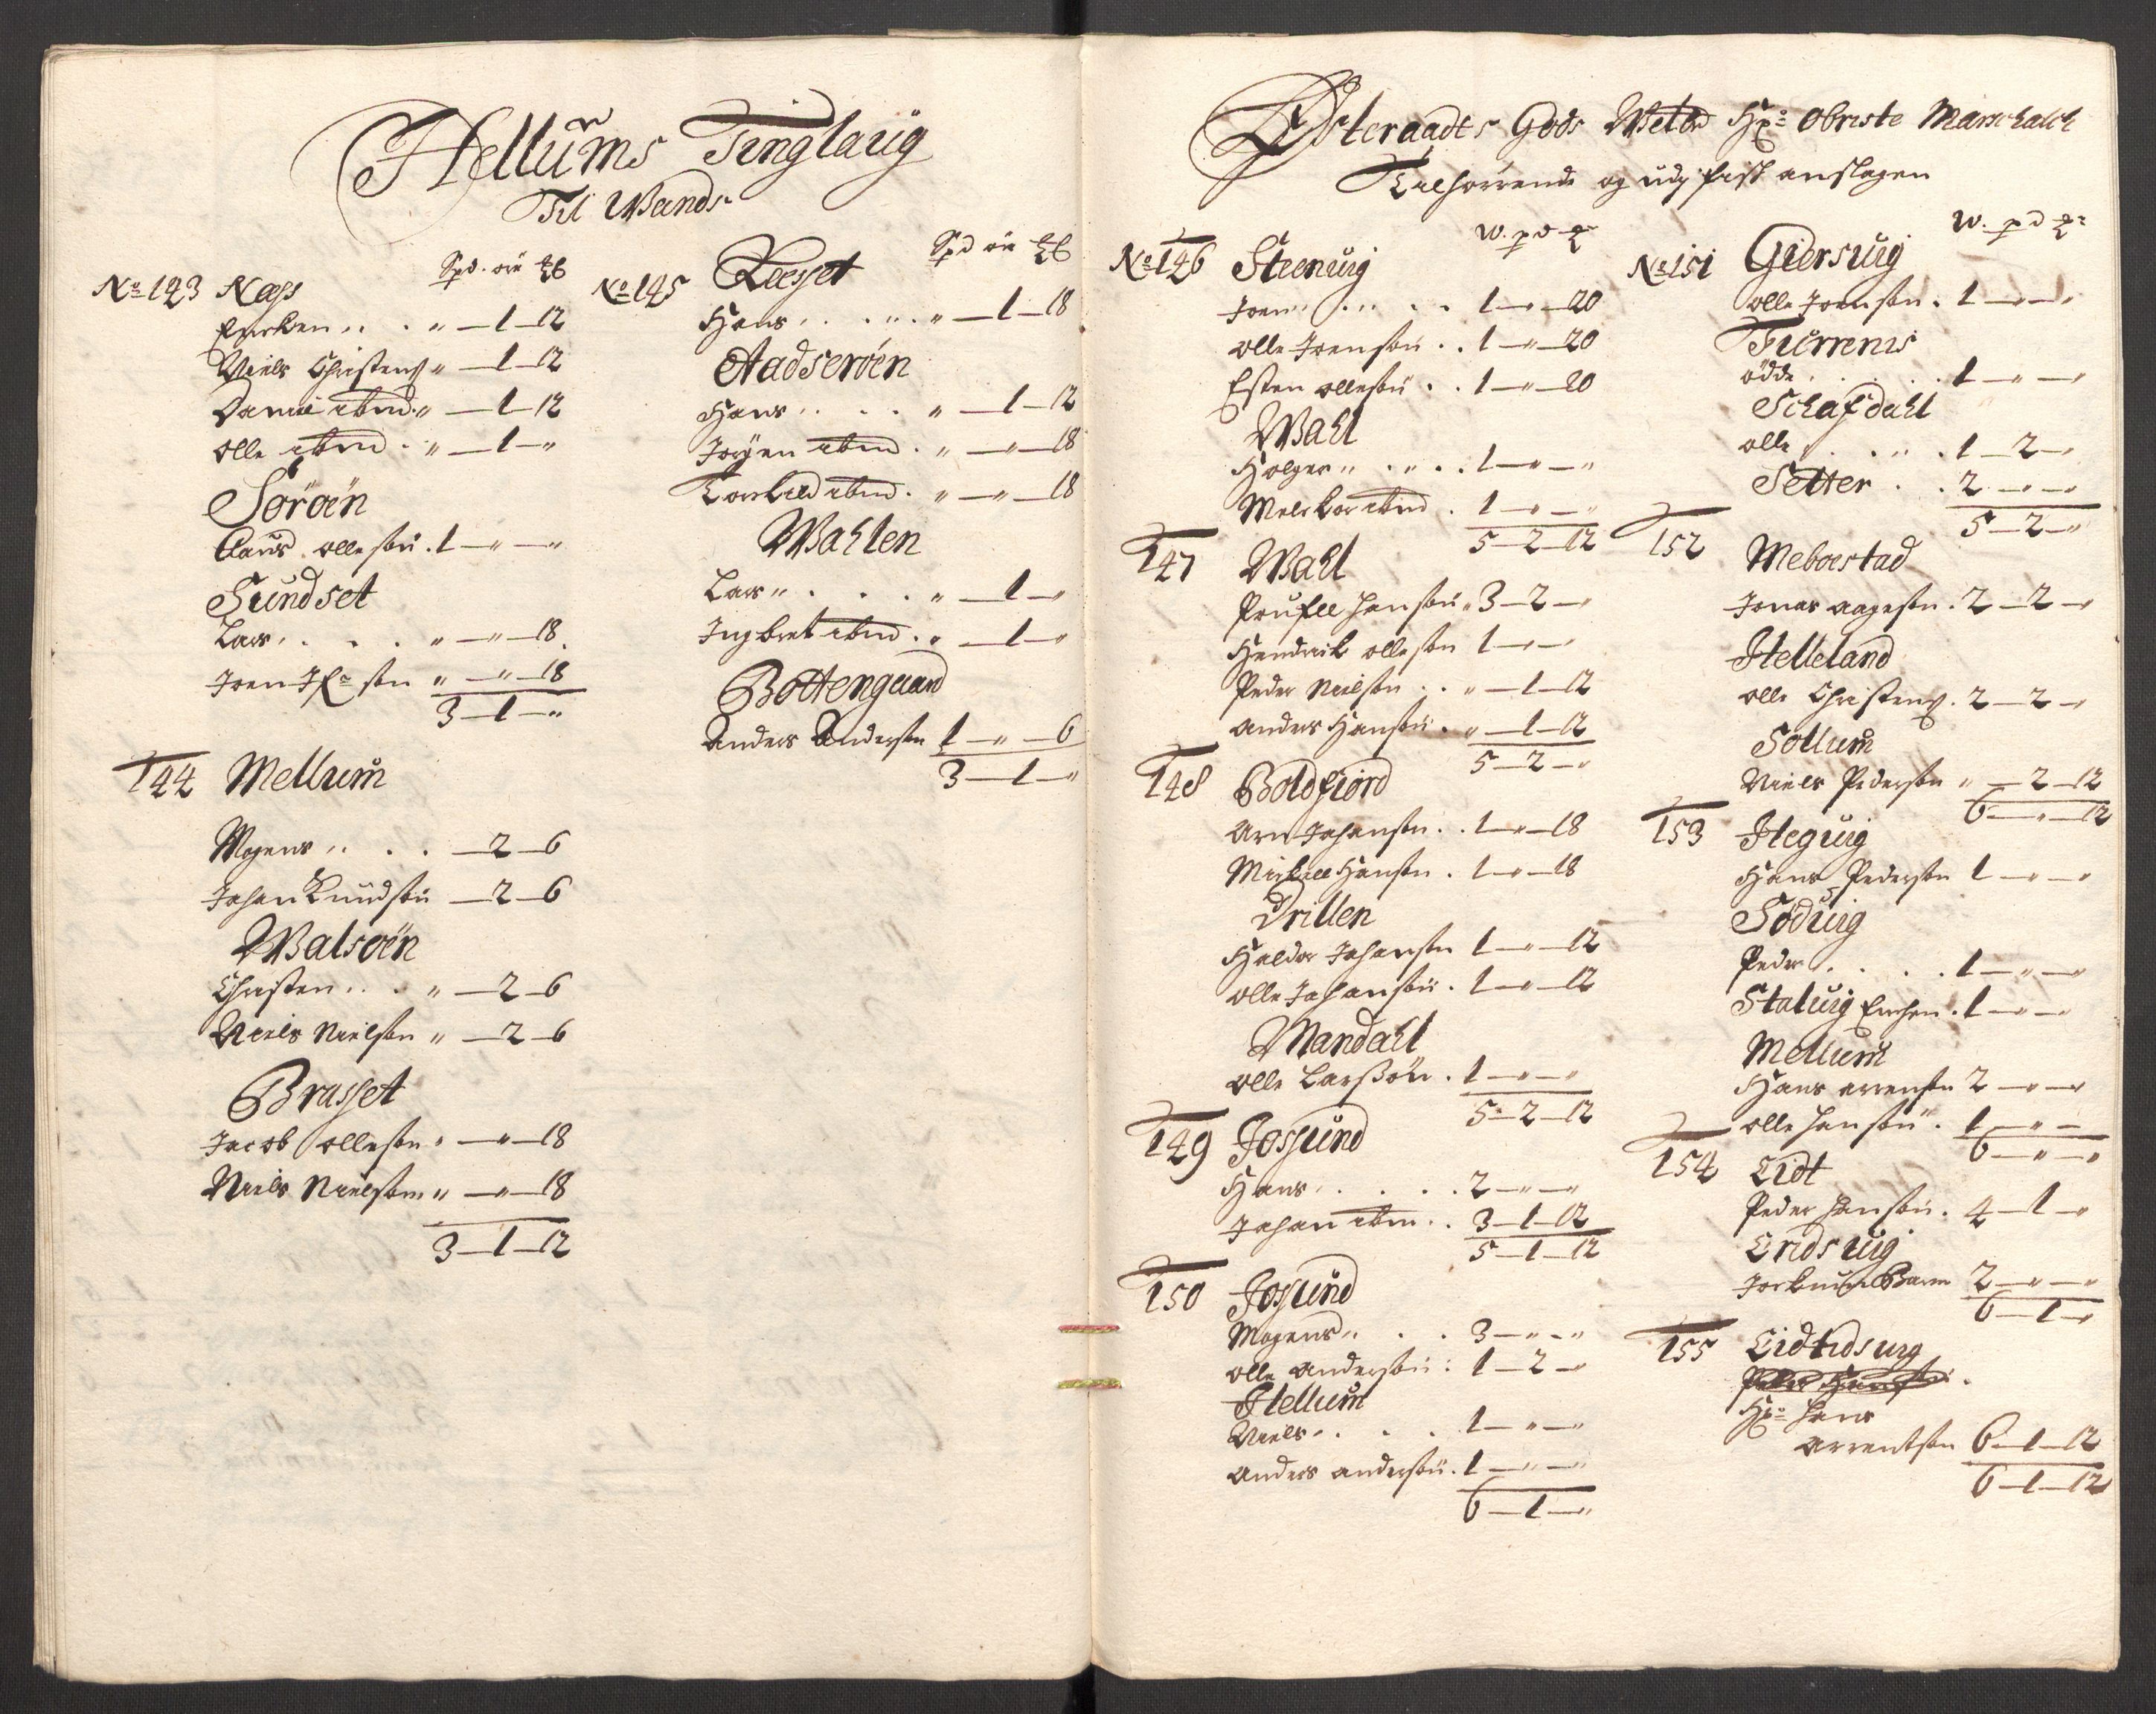 Hellums Tinglaug
Til Wands
Spd. øre
No 143 Næss
Enchen . . . " — 1 — 12
Niels Christens " — 1 — 12
Daniel ibmd. " — 1 — 12
Olle ibmd . " — 1 — "
Söröen
Claus ollesøn . 1 — " — "
Sundset
Lars . . . . " — " — 18
Joen søn " — " — 18
3 — 1 — "
144 Mellum
Mogens . . . — 2 — 6
Johan Knudsøn — 2 — 6
Walsöen
Christen . . . " — 2 — 6
Niels Nielsøn " — 2 — 6
Brasset
Jacob ollesøn " — " — 18
Niels Nielsøn " — " — 18
3 — 1 — 12
Spd øre
No 145 Ræsset
Hans . . . . " — 1 — 18
Aadseröen
Hans . . . . " — 1 — 12
Joen ibmd . " — " — 18
Torkild ibmd . " — " — 18
Wahlen
Lars . . . . " — 1 — "
Ingbret ibmd . " — 1 — "
Bottengaard
Anders Andersøn 1 — " — 6
3 — 1 — "
Østeraadts Gods Hr: Obriste Marschalch
Tilhörende og udj fisk anslagen
W. pd
No 146 Steenuig
Joen . . . . . 1 — " — 20
Olle Joensøn . . 1 — " — 20
Esten ollesøn . . 1 — " — 20
Wahl
Holger . . . . 1 — " — "
Melchor ibmd . 1 — " — "
5 — 2 — 12
147 Wahl
Proufell hansøn " 3 — 2 — "
Hendrick ollesøn 1 — " — "
Peder Nielsøn . . " — 1 — 12
Anders Hansøn . " — 1 — 12
5 — 2 — "
148 Boldfiord
Arn Johansøn . . 1 — " — 18
Mickell Hansøn . 1 — " — 18
Drillen
Haldor Johansøn 1 — " — 12
Olle Johansøn . 1 — " — 12
Mandahl
Olle Larssøn . 1 — " — "
5 — 2 — 12
149 Jossund
Hans . . . . . 2 — " — "
Johan ibm . . 3 — 1 — 12
5 — 1 — 12
150 Jossund
Mogens . . . . 3 — " — "
Olle Andersøn : 1 — 2 — "
Hellum
Niels . . . . 1 — " — "
Anders andersøn . 1 — " — "
6 — 1 — "
W. pd
No 151 Giersuig
Olle Joensøn . 1 — " — "
Turrenis
ödde . . . . . 1 — " — "
Schafdahl
Olle . . . . 1 — 2 — "
Setter . . 2 — " — "
5 — 2 — "
152 Meboestad
Jonas aagesøn . 2 — 2 — "
Helleland
Olle Christens . 2 — 2 — "
Sollum
Niels Pedersøn " — 2 — 12
6 — " — 12
153 Heguig
Hans Pedersøn 1 — " — "
Söduig
Peder . . . . 1 — " — "
Staluig Enchen . 1 — " — "
Mellum
Hans arrensøn 2 — " — "
Olle hansøn . 1 — " — "
6 — " — "
154 Eidt
Peder Hansøn . 4 — 1 — "
Eridsuig
2 — " — "
6 — 1 — "
155 Eidtidsuig
Hr: Hans
Arrentsøn 6 — 1 — 12
6 — 1 — 12